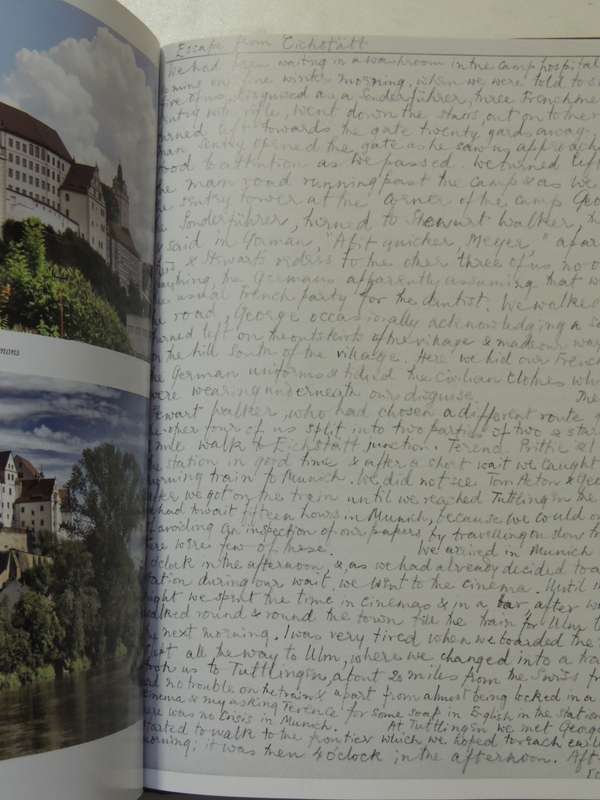 Escape from Eichstätt
We had been waiting in a washroom in the camp hospital
one winter morning, when we were told to
disguised as a Sonderführer, three Frenchmen
with rifle, went down the stairs, out on to the
turned left towards the gate twenty yards away.
sentry opened the gate as he saw us approach
stood to attention as we passed. We turned left
the main road running past the camp & as we
sentry tower at the corner of the camp
Sonderführer, turned to Stewart Walker,
& said in German, "A bit quicker, Meyer,"
& Stewart's to the other three of us, no o
the Germans apparently assuming that w
usual French party for the dentist. We walked
road, George occasionally acknowledging a
turned left on the outskirts of the village & made our way
the hill south of the village. Here we hid our French
German uniforms & tidied the civilian clothes wh
were wearing underneath our disguise. The
Stewart Walker, who had chosen a different route
other four of us split into two parties of two & sta
mile walk to Eichstätt junction. Terence Prittie & I
the station in good time & after a short wait we caught
morning train to Munich. We did not see Tom Acton & Geo
we got on the train until we reached Tuttlingen
had to wait fifteen hours in Munich, because we could o
avoiding an inspection of our papers, by travelling on slow
there were few of these. We arrived in Munich
o'clock in the afternoon, &, as we had already decided to
station during our wait, we went to the cinema. Until
we spent the time in cinemas & in a bar, after w
walked round & round the town till the train for Ulm
the next morning. I was very tired when we boarded the
all the way to Ulm, where we changed into a tra
took us to Tuttlingen, about 20 miles from the Swiss fr
no trouble on the train & apart from almost being locked in a
cinema & my asking Terence for some soap in English in the station
there was no crisis in Munich. At Tuttlingen we met George
started to walk to the frontier which we hoped to reach
morning; it was then 4 o'clock in the afternoon. Aft